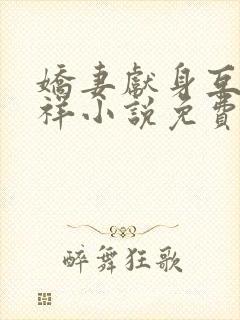 嬌妻獻身互
祥小說免費
醉舞狂歌